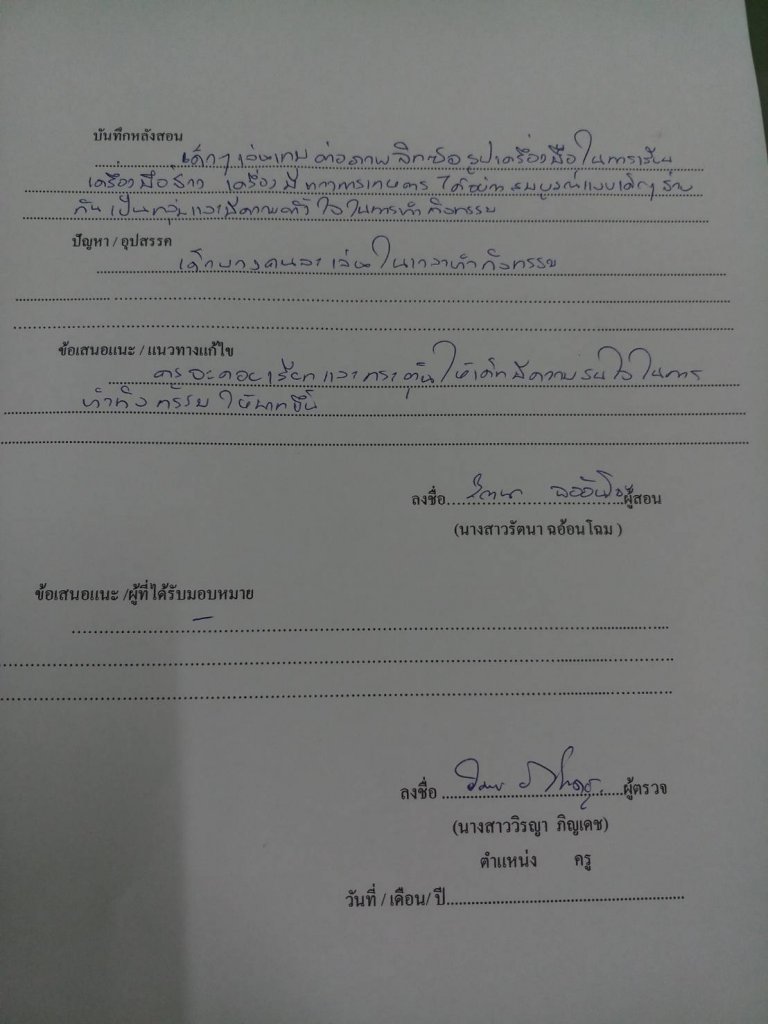 บันทึกหลังสอน
เด็กๆเล่นเกมต่อภาพจิกซอรูปเครื่องมือในการเรียน
เครื่องมือช่าง เครื่องมือทางการเกษตร ได้อย่างสมบูรณ์แบบเด็กๆร่วม
กันเป็นกลุ่มและมีความตั้งใจในการทำกิจกรรม
ปัญหา / อุปสรรค
เด็กบางคนจะเล่นในเวลาทำกิจกรรม
ข้อเสนอแนะ / แนวทางแก้ไข
ครูจะคอยเรียกและกระตุ้นให้เด็กมีความสนใจในการ
ทำกิจกรรมให้มากขึ้น
ลงชื่อ รัตนา ฉอ้อนโฉม ผู้สอน
(นางสาวรัตนา ฉอ้อนโฉม )
ข้อเสนอแนะ /ผู้ที่ได้รับมอบหมาย
-
ลงชื่อ ผู้ตรวจ
(นางสาววิรญา ภิญเดช)
ตำแหน่ง ครู
วันที่ / เดือน/ ปี